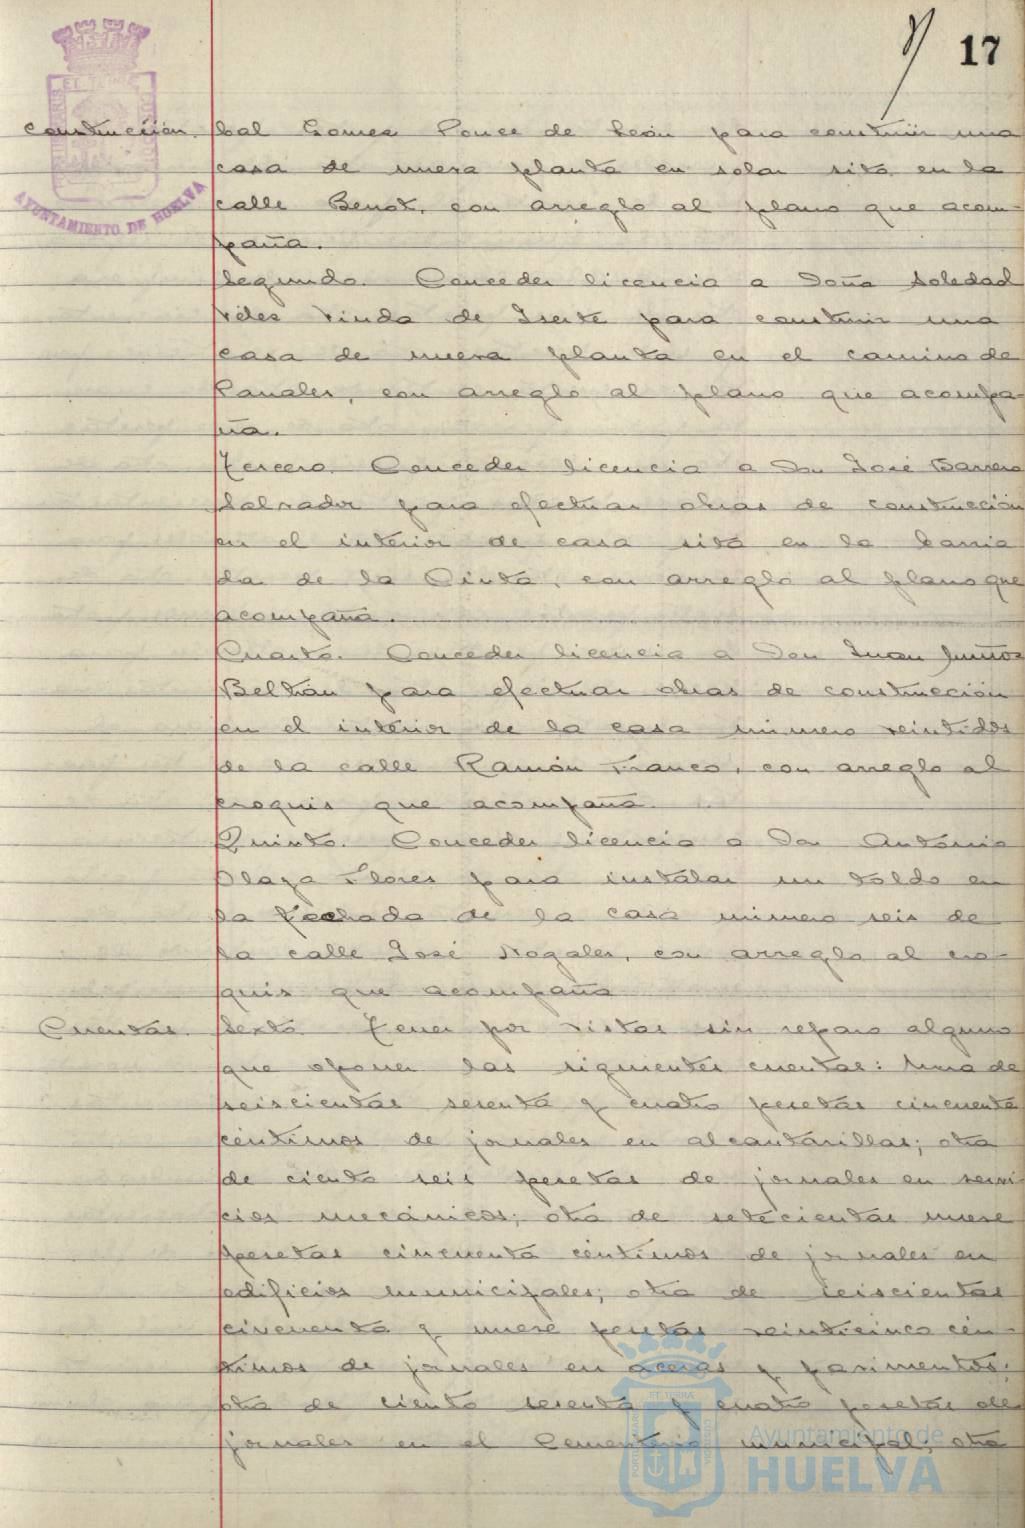 17
construcción. bal Gomez Ponce de León para construir una
casa de nueva planta en solar sito en la
calle Benot, con arreglo al plano que acom-
paña.
Segundo. Conceder licencia a Doña Soledad
Vélez viuda de para construir una
casa de nueva planta en el camino de
Canales, con arreglo al plano que acompa-
ña.
Tercero. Conceder licencia a Don José Barrero
Salvador para efectuar obras de construcción
en el interior de casa sita en la barria
da de la Cinta, con arreglo al plano que
acompaña.
Cuarto. Conceder licencia a Don Juan
Beltrán para efectuar obras de construcción
en el interior de la casa número veintidós
de la calle Ramón Franco, con arreglo al
croquis que acompaña.
Quinto. Conceder licencia a Don Antonio
Plaza Flores para instalar un toldo en
la fachada de la casa número seis de
la calle José Nogales, con arreglo al cro-
quis que acompaña
Cuentas. Sexto. Tener por vistas sin reparo alguno
que oponer las siguientes cuentas: una de
seiscientas sesenta y cuatro pesetas cincuenta
céntimos de jornales en alcantarillas; otra
de ciento seis pesetas de jornales en servi
cios mecánicos; otra de setecientas nueve
pesetas cincuenta céntimos de jornales en
edificios municipales; otra de seiscientas
cincuenta y nueve pesetas veinticinco cén-
timos de jornales en aceras y pavimentos;
otra de ciento sesenta y cuatro pesetas de
jornales en el Cementerio municipal; otra
AYUNTAMIENTO DE HUELVA
Ayuntamiento de
HUELVA